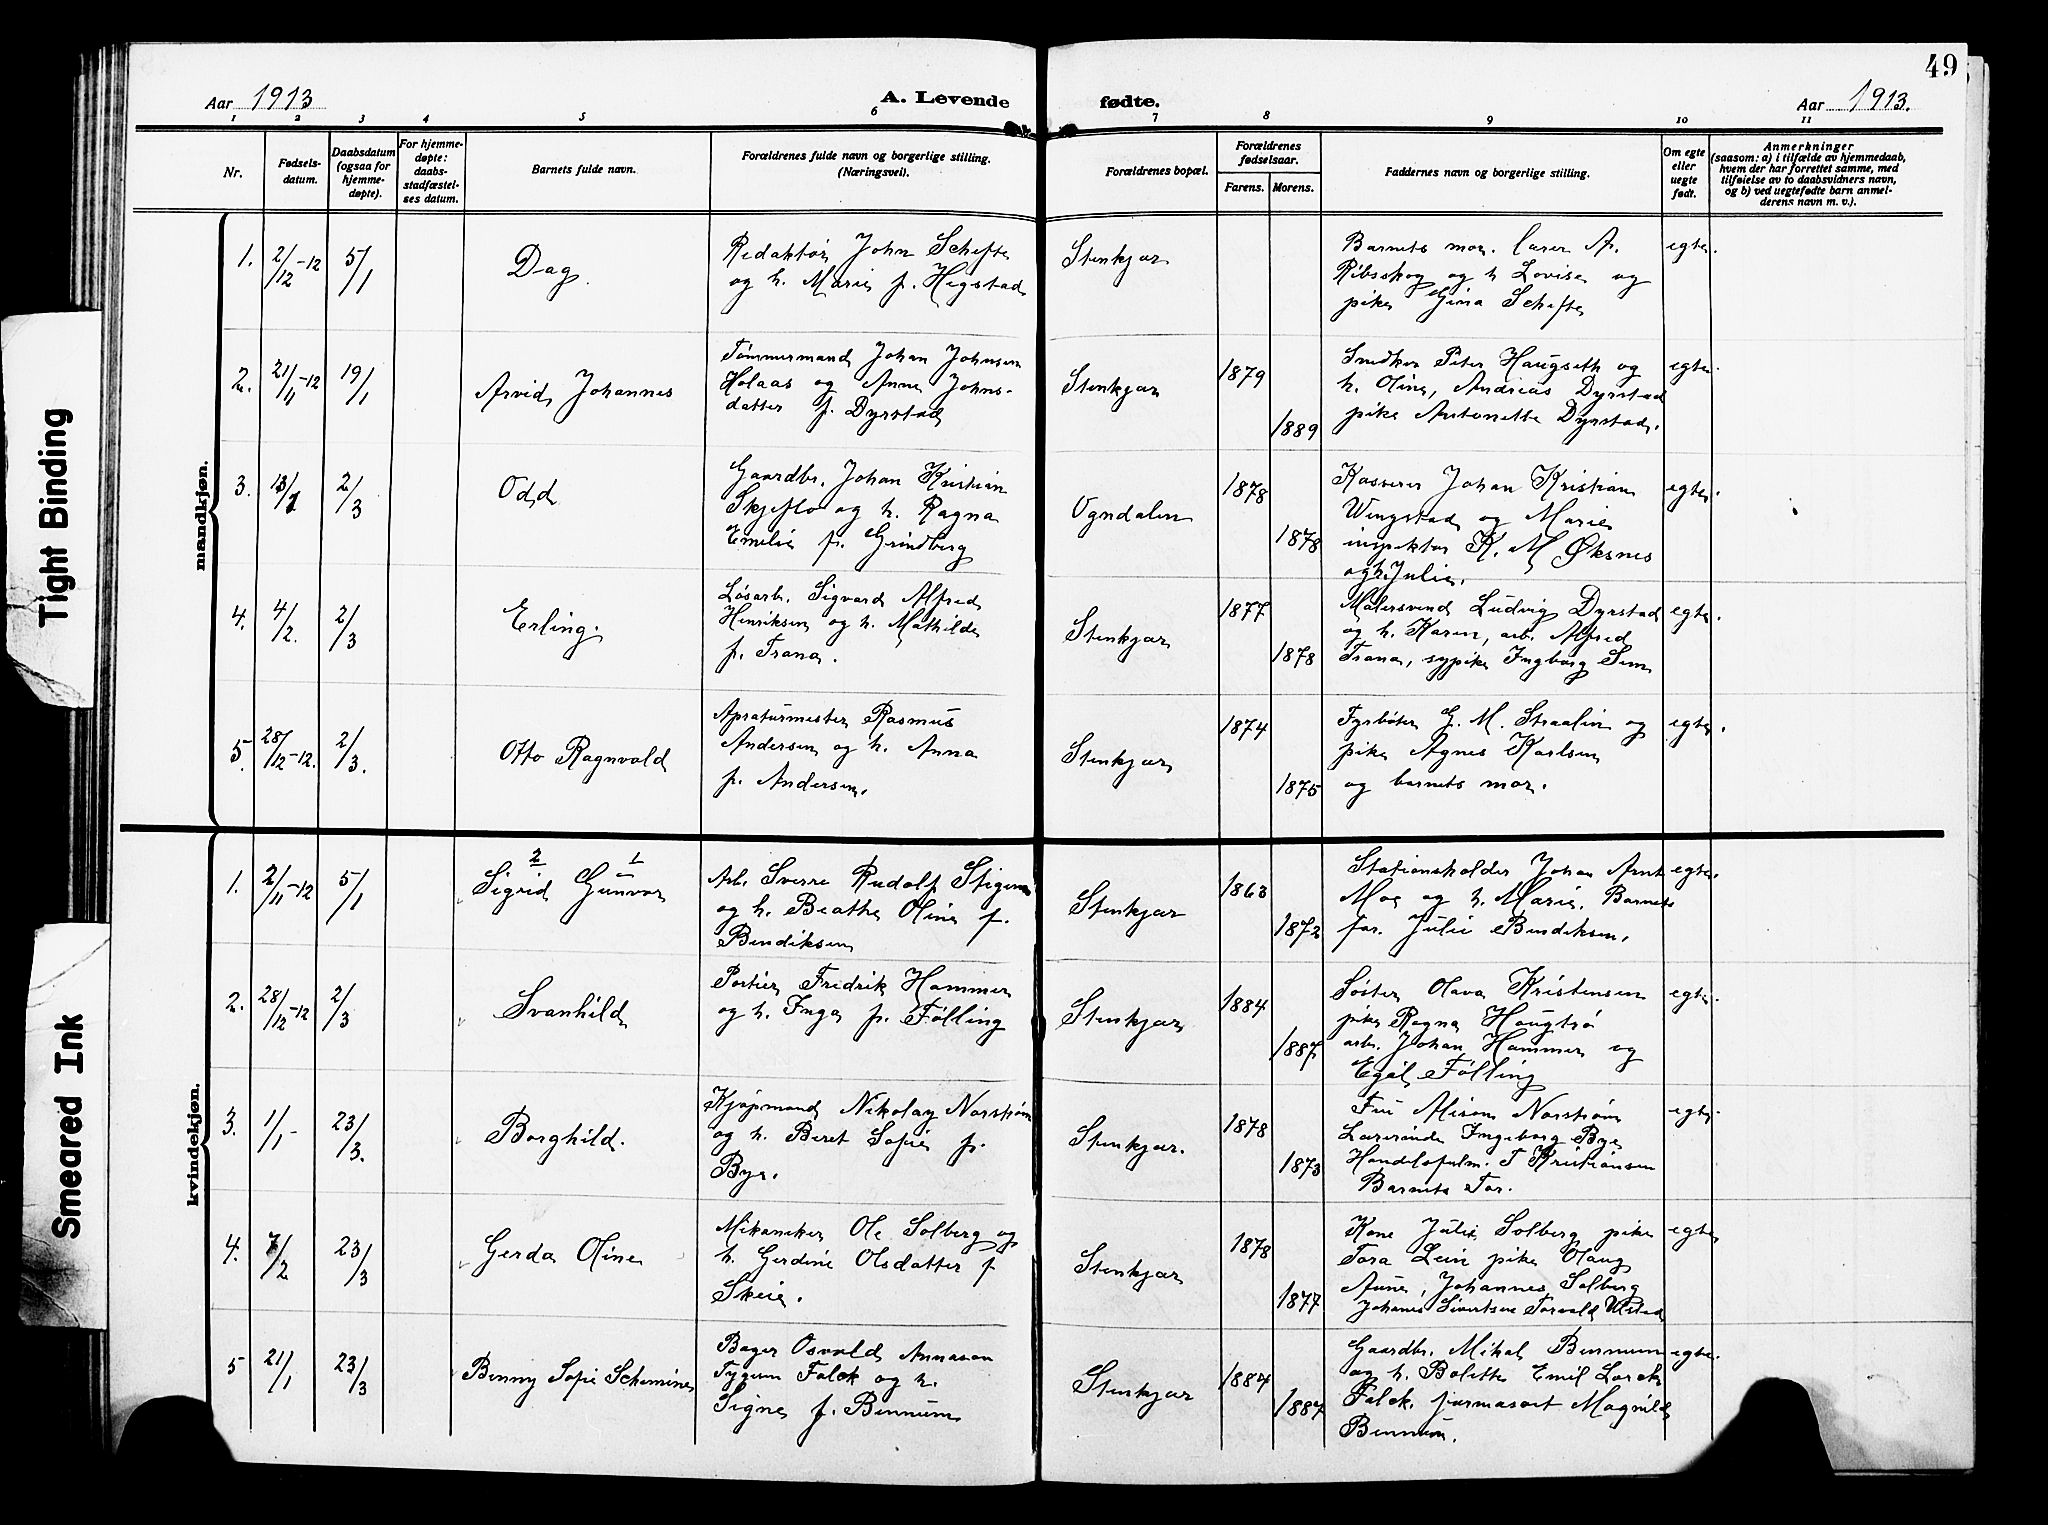 49
Aar 1913
A. Levende fødte.
Aar 1913.
1 2 3 4 5 6 7 8 9 10 11
Nr.
Fødsels-
datum.
Daabsdatum
(ogsaa for
hjemme-
døpte).
For hjemme-
døpte:
daabs-
stadfæstel-
ses datum.
Barnets fulde navn.
Forældrenes fulde navn og borgerlige stilling.
(Næringsvei).
Forældrenes bopæl.
Forældrenes
fødselsaar.
Farens. Morens.
Faddernes navn og borgerlige stilling.
Om egte
eller
uegte
født.
Anmerkninger
(saasom: a) i tilfælde av hjemmedaab,
hvem der har forrettet samme, med
tilføielse av to daabsvidners navn,
og b) ved uegtefødte barn anmel-
derens navn m. v.).
mandkjøn.
1. 2/12-12 5/1
Dag.
Redaktør John Schefte
og h. Marie f. Hegstad
Stenkjær
Barnets mor. lærer A.
Ribsskog og h Lovise og
pike Gina Schefte
egte.
2. 21/11-12 19/1
Arvid Johannes
Tømmermand Johan Johnsen
Holaas og Anne Johns-
datter f. Dyrstad
Stenkjær
1879
1889
Snedker Peter Haugseth og
h. Oline, Andreas Dyrstad
pike Antonette Dyrstad.
egte.
3. 13/1 2/3
Odd
Gaardbr. Johan Kristian
Skjeflo og h. Ragna
Emelie f. Grindberg
Ogndalen
1878
1878
Kasserer Johan Kristian
Wengstad og Marie
inspektør K. M Øksnes
og h. Julie.
egte.
4. 4/2. 2/3
Erling.
Løsarb. Sigvard Alfred
Henriksen og h. Mathilde
f. Trana.
Stenkjær
1877
1878
Malersvend Ludvig Dyrstad
og h. Karen, arb. Alfred
Trana, sypike Ingborg Sem
egte.
5. 28/12-12. 2/3.
Otto Ragnvald
Apraturmester Rasmus
Andersen og h. Anna
f. Andersen.
Stenkjær
1874
1875
Fyrbøter G. M. Straalin og
pike Agnes Karlsen
og barnets mor.
egte.
kvindekjøn.
1. 2/11-12 5/1
2 1
Sigrid Gunvor
Arb. Sverre Rudolf Stigum
og h. Beathe Oline f.
Bendiksen
Stenkjær
1863
1872
Stationsholder Johan Arnt
Moe og h. Marie. Barnets
far. Julie Bendiksen.
egte.
2. 28/12-12 2/3
Svanhild
Portier Fredrik Hammer
og h. Inga f. Følling
Stenkjær
1884
1887
Søster Olava Kristensen
pike Ragna Haugtrø
arb. Johan Hammer og
Egil Følling
egte.
3. 1/1- 23/3.
Borghild.
Kjøpmand Nikolay Norstrøm
og h. Beret Sofie f.
Bye.
Stenkjær.
1878
1873
Fru Norstrøm
Lærerinde Ingeborg Bye
Handlsfulm. T Kristiansen
Barnets Far.
egte.
4. 7/2 23/3
Gerda Oline
Mekaniker Ole Solberg og
h. Gerdine Olsdatter f
Skeie.
Stenkjær
1878
1877
Kone Julie Solberg pike
Tora Lein pike Olaug
Aune, Johannes Solberg
Johanes Sivertsen Torvald
egte
5 21/1 23/3
Benny Sofie
Bager Osvald Annason
Tygum Falck og h.
Signe f. Bennum
Stenkjær
1884
1887
Gaardbr. Mikal Bennum
og h. Bolette Emil Lorck
Falck. farmasøit Magnild
Bennum.
egte.
Tight Binding
Smeared Ink